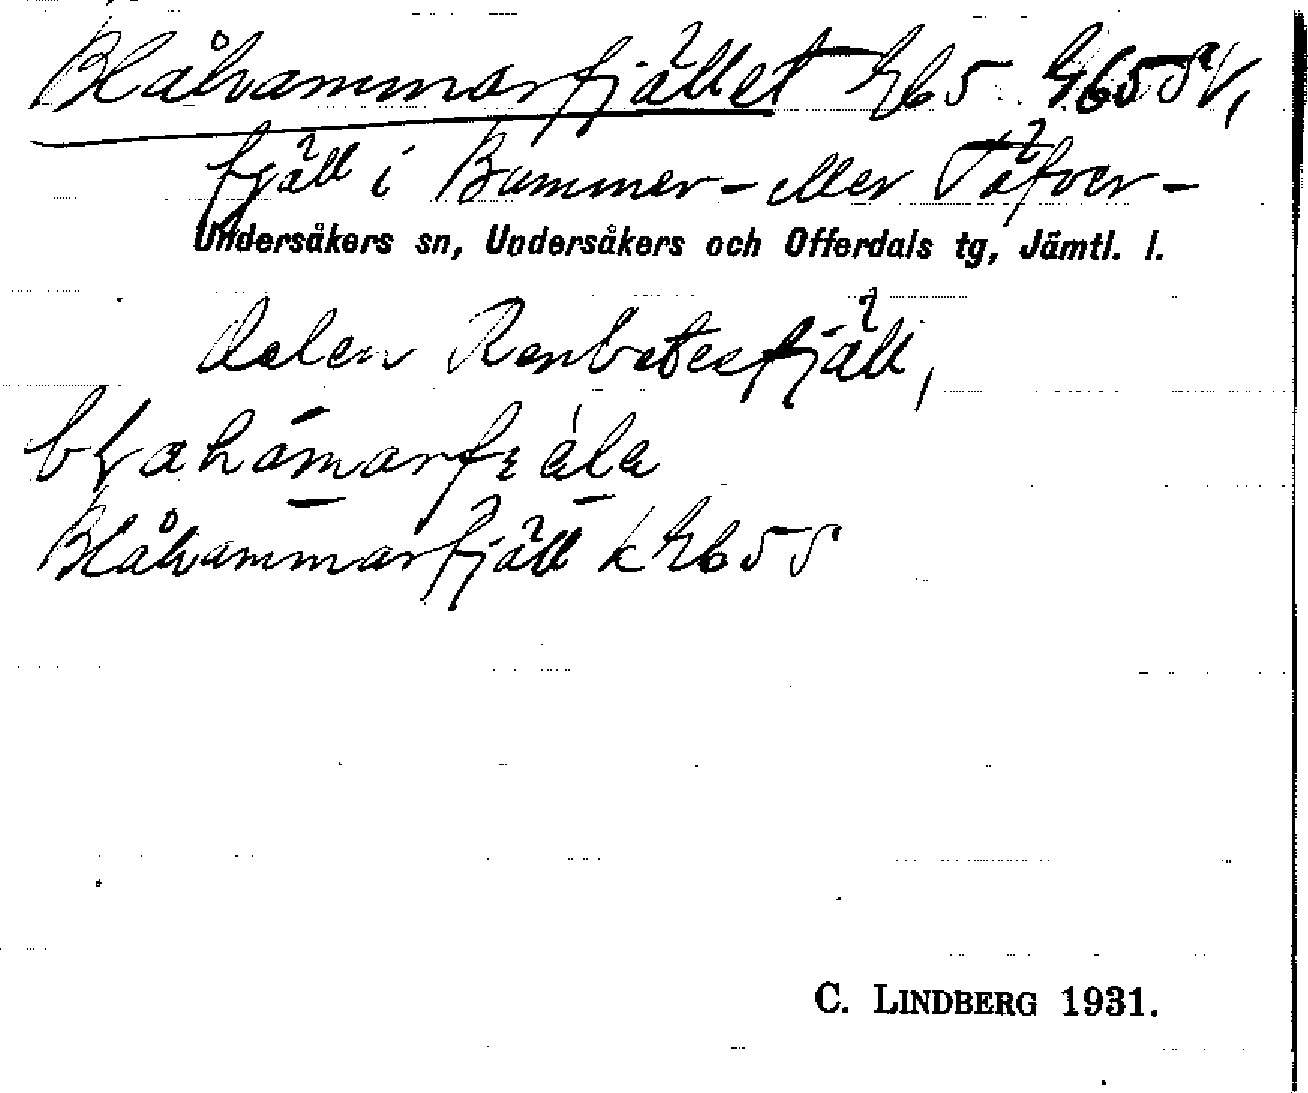 Blåhammarfjället Gb5 Gb5SV,
fjäll i Bummer- eller Täfver-
Undersåkers sn, Undersåkers och Offerdals tg, Jämtl. l.
dalen Renbetesfjäll,
Blåhammarfjäll k Gb5S
C. LINDBERG 1931.